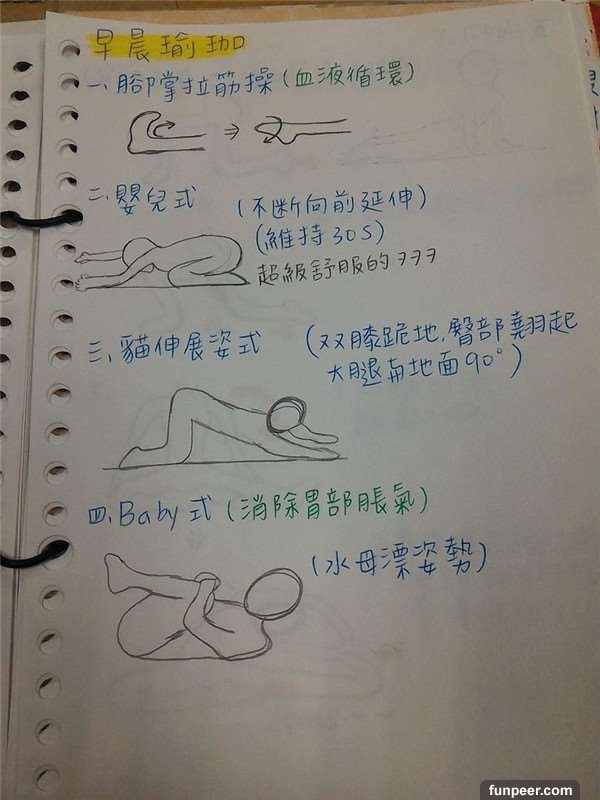 早晨瑜珈
一、腳掌拉筋操(血液循環)
二、嬰兒式 (不斷向前延伸)
(維持30S)
超級舒服的ヲヲヲ
三、貓伸展姿式 (双膝跪地,臀部翹起
大腿與地面90°)
四、Baby式(消除胃部脹氣)
(水母漂姿勢)
funpeer.com